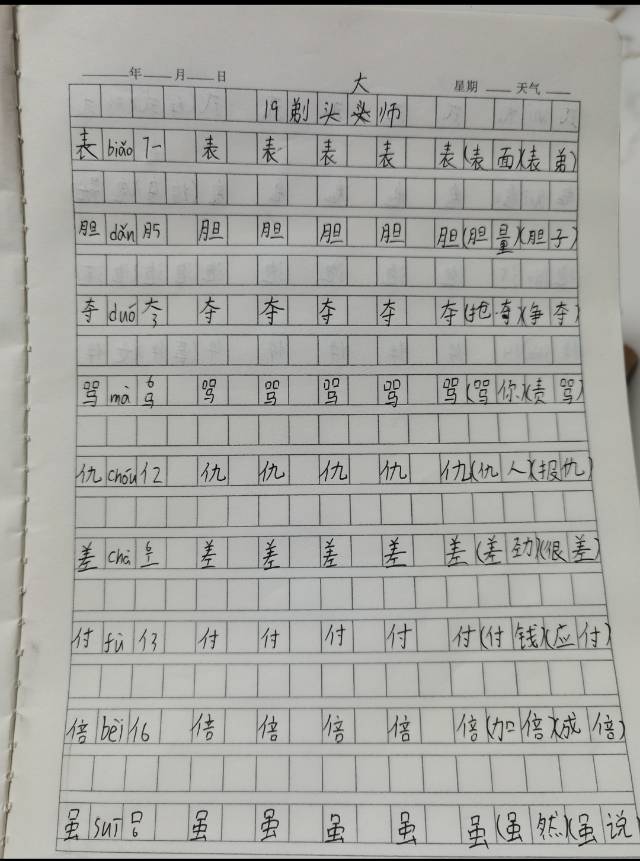 年 月 日 星期 天气
大
19 剃头大师
表 biǎo 7一 表 表 表 表 表(表面)(表弟)
胆 dǎn 月5 胆 胆 胆 胆 胆(胆量)(胆子)
夺 duó 大3 夺 夺 夺 夺 夺(抢夺)(争夺)
骂 mà 6马 骂 骂 骂 骂 骂(骂你)(责骂)
仇 chóu 亻2 仇 仇 仇 仇 仇(仇人)(报仇)
差 chà 6工 差 差 差 差 差(差劲)(很差)
付 fù 亻3 付 付 付 付 付(付钱)(应付)
倍 bèi 亻6 倍 倍 倍 倍 倍(加倍)(成倍)
虽 suī 口6 虽 虽 虽 虽 虽(虽然)(虽说